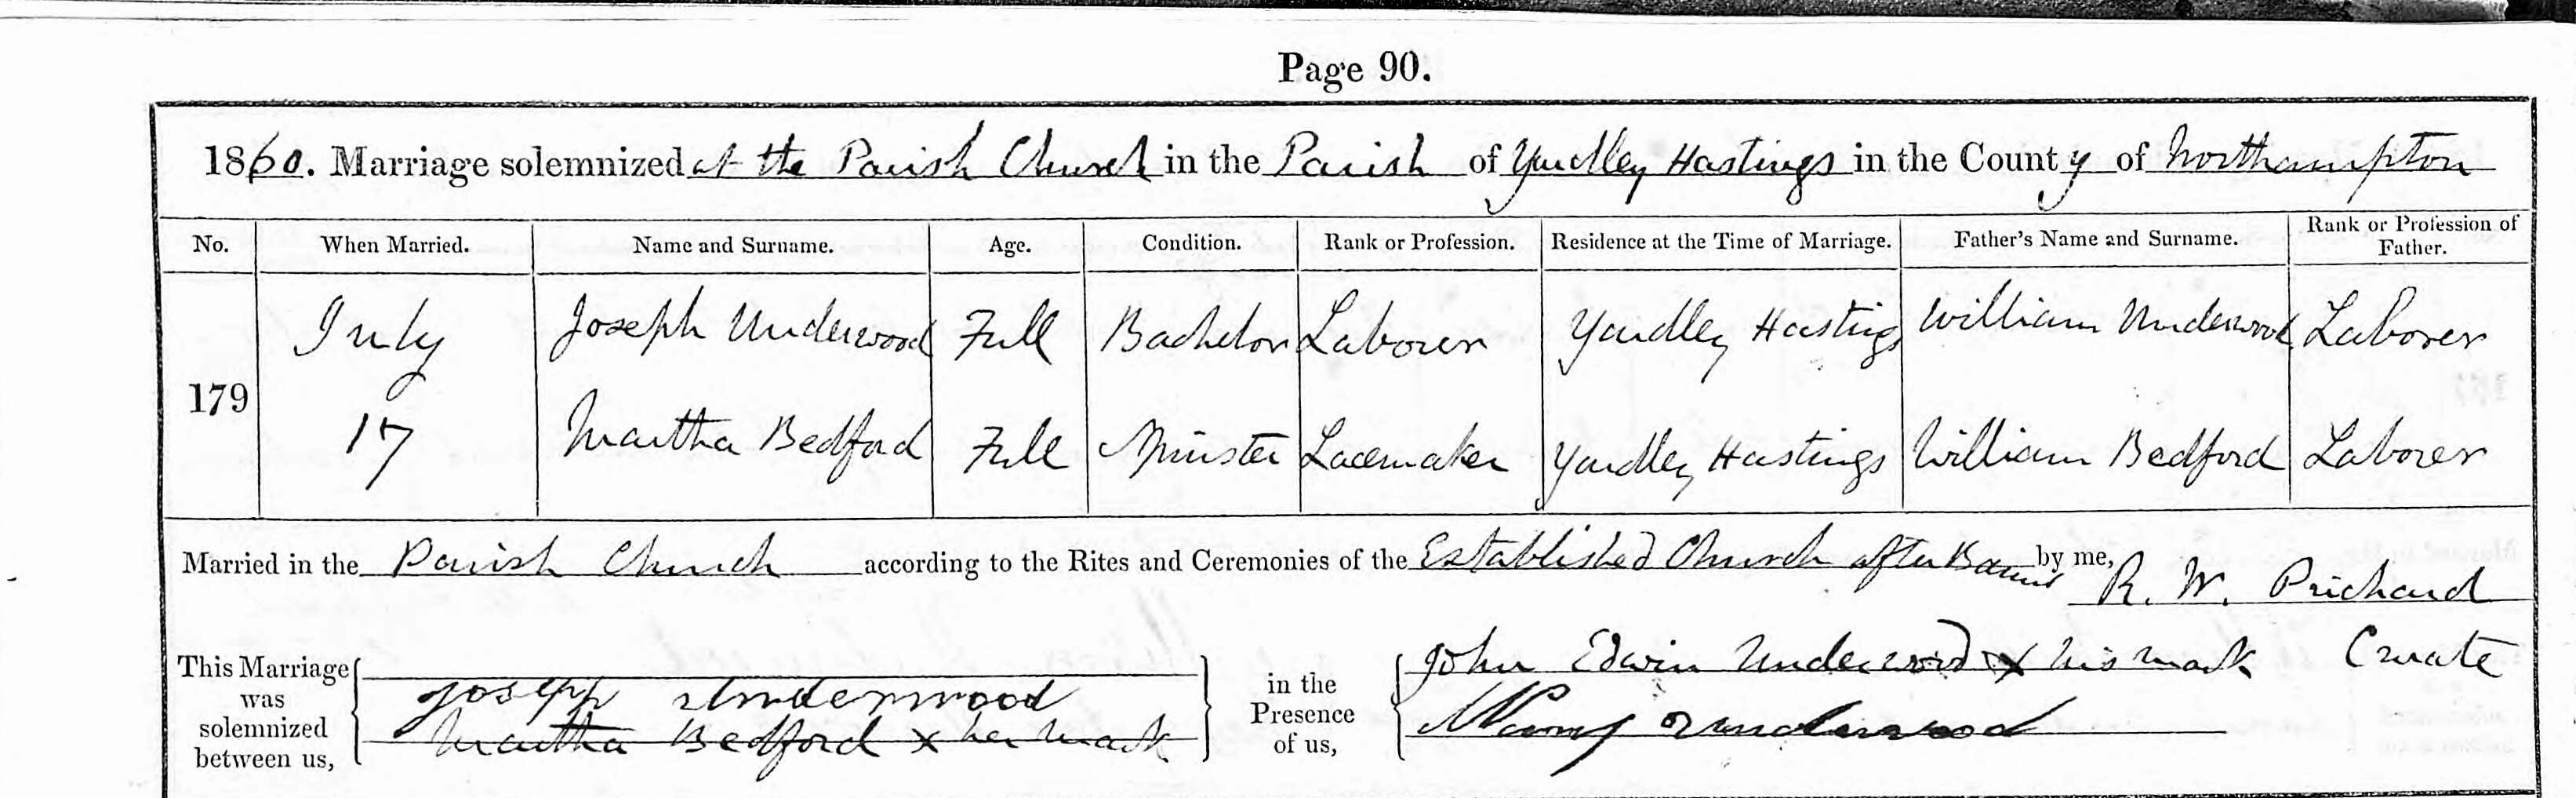 Page 90.
1860. Marriage solemnized at the Parish Church in the Parish of Yardley Hastings in the County of Northampton
No. When Married. Name and Surname. Age. Condition. Rank or Profession. Residence at the Time of Marriage. Father's Name and Surname. Rank or Profession of Father.
179
July Joseph Underwood Full Bachelor Laborer Yardley Hastings William Underwood Laborer
17 Martha Bedford Full Spinster Lacemaker Yardley Hastings William Bedford Laborer
Married in the Parish Church according to the Rites and Ceremonies of the Established Church after Banns by me,
R. W. Prichard
Curate
This Marriage was solemnized between us,
Joseph Underwood
Martha Bedford x her mark
in the Presence of us,
John Edwin Underwood x his mark
Underwood